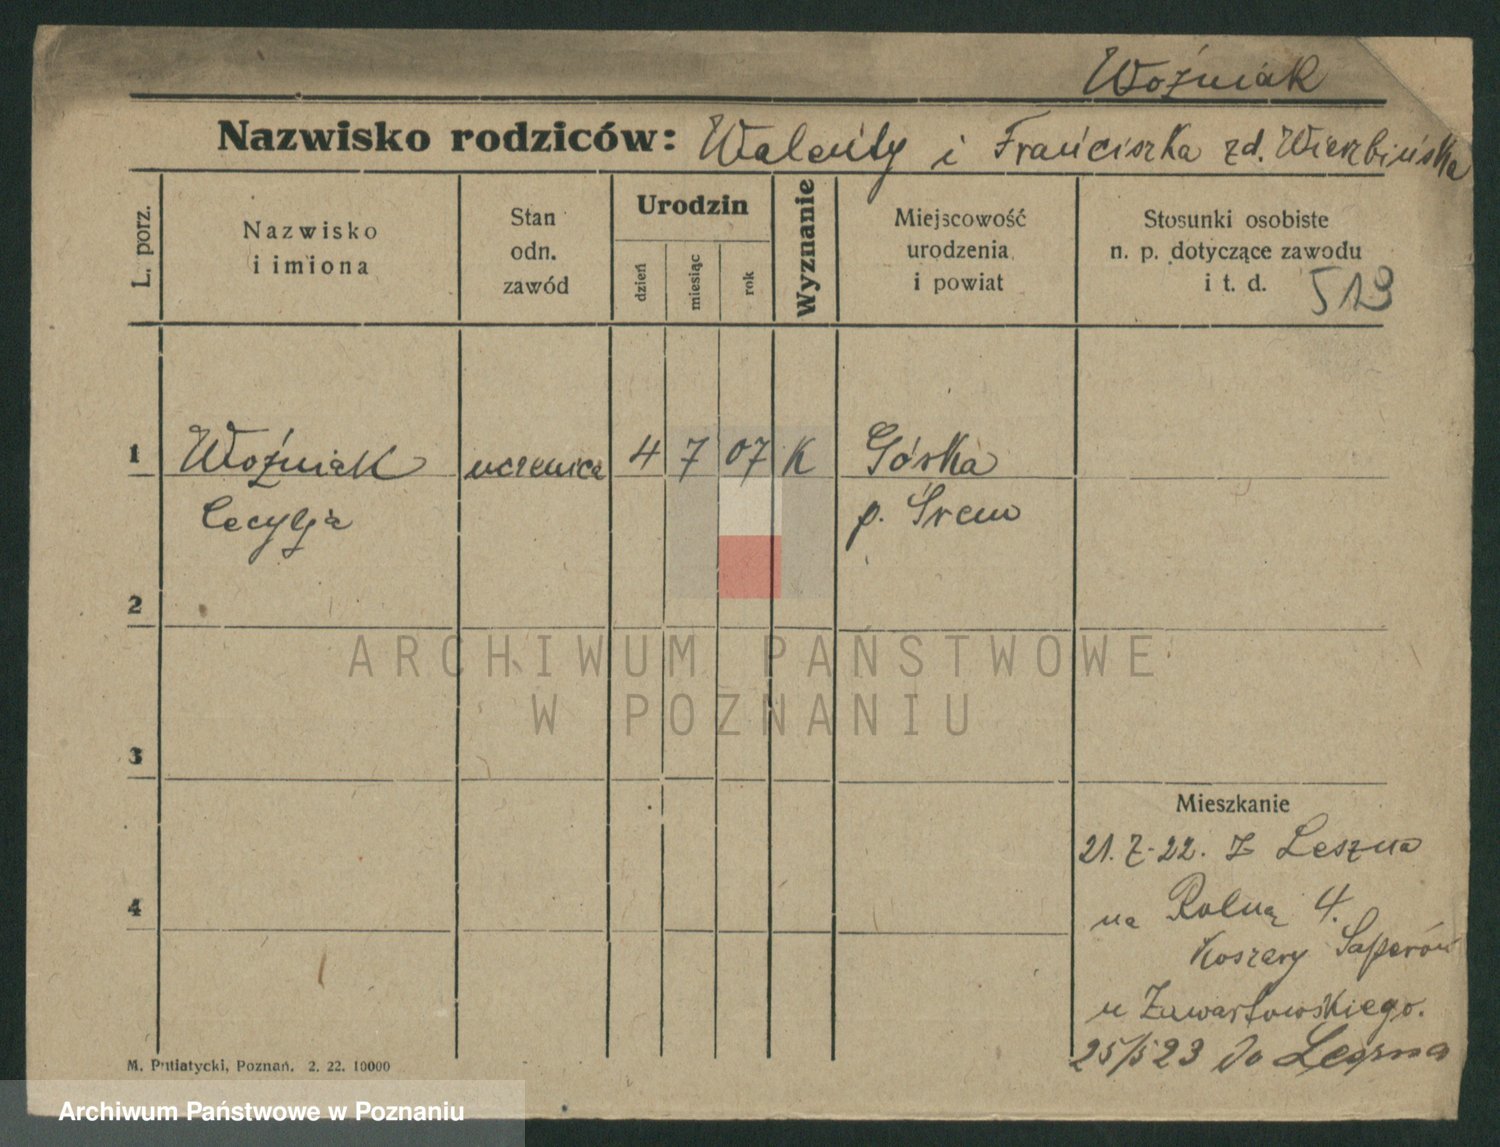 Woźniak
Nazwisko rodziców: Walenty i Franciszka zd. Wierzbińska
L. porz.
Nazwisko
i imiona
Stan
odn.
zawód
Urodzin
dzień
miesiąc
rok
Wyznanie
Miejscowość
urodzenia
i powiat
Stosunki osobiste
n. p. dotyczące zawodu
i t. d. 519
1 Woźniak uczenica 4 7 07 K Górka
Cecylja p. Śrem
2
ARCHIWUM PAŃSTWOWE
W POZNANIU
3
Mieszkanie
21. 7. 22. z Leszna
4
na Rolną 4.
Koszary Saperów
u Zawartowskiego.
25/5 23 do Leszna
M. Putiatycki, Poznań. 2. 22. 10000
Archiwum Państwowe w Poznaniu